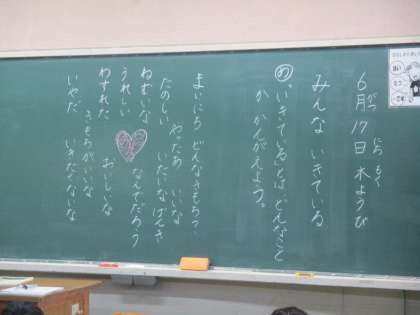 6月17日 木ようび
がつ にち もく
みんな いきている
め 「いきている」とは どんなこと
か かんがえよう。
まいにち どんなきもち?
やったあ いいな
たのしい いたいな げんき
ねむいな なんでだろう
うれしい
わすれた おいしいな
きもちがいいな
いやだ いきたくないな